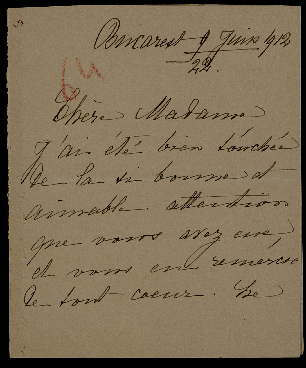 Bucarest 9 Juin 1912
22.
64
Chère Madame
J'ai été bien touchée
de la si bonne et
aimable attention
que vous avez eue
et vous en remercie
de tout coeur.